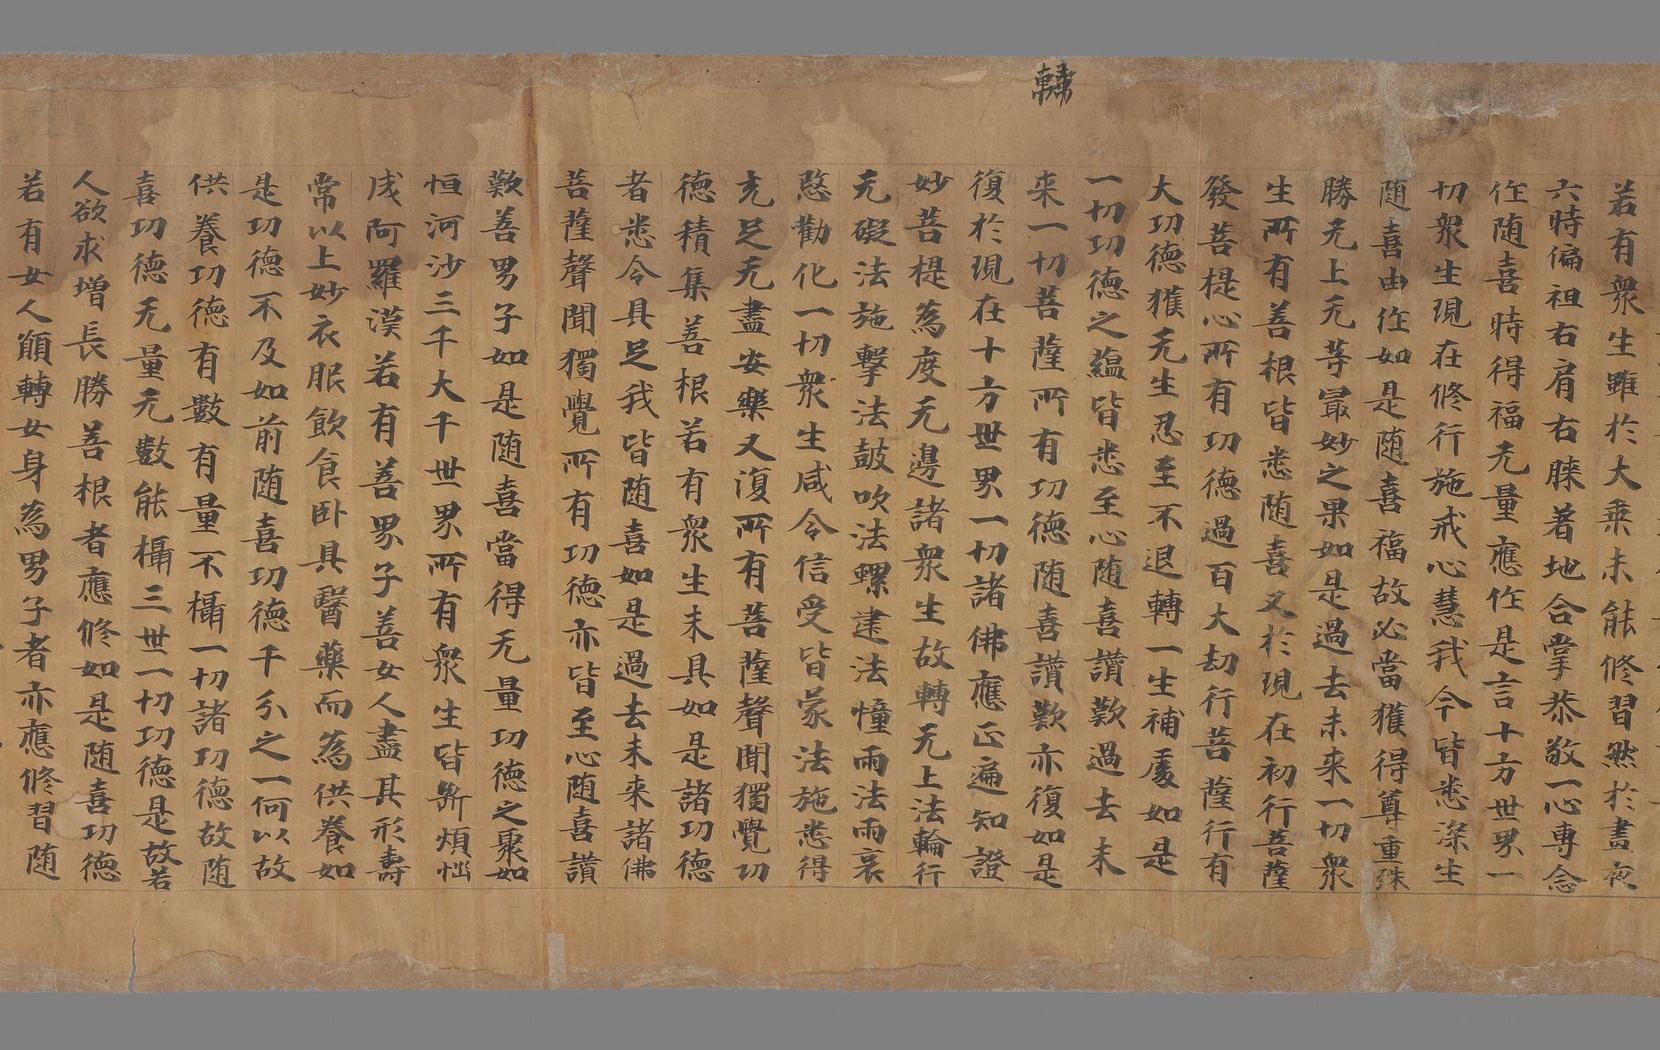 若有衆生雖於大乘未能修習然於晝夜
六時偏袒右肩右膝著地合掌恭敬一心專念
作随喜時得福无量應作是言十方世界一
切衆生現在修行施戒心慧我今皆悉深生
随喜由作如是随喜福故必當獲得尊重殊
勝无上无等最妙之果如是過去未来一切衆
生所有善根皆悉随喜又於現在初行菩薩
發菩提心所有功德過百大劫行菩薩行有
大功德獲无生忍至不退轉一生補處如是
一切功德之蘊皆悉至心随喜讃歎過去未
来一切菩薩所有功德随喜讃歎亦復如是
復於現在十方世界一切諸佛應正遍知證
妙菩提為度无邊諸衆生故轉无上法輪行
无礙法施擊法鼓吹法螺建法幢雨法雨哀
愍勸化一切衆生咸令信受皆蒙法施悉得
充足无盡安樂又復所有菩薩聲聞獨覺功
德積集善根若有衆生未具如是諸功德
者悉令具足我皆随喜如是過去未来諸佛
菩薩聲聞獨覺所有功德亦皆至心随喜讃
歎善男子如是随喜當得无量功德之聚如
恒河沙三千大千世界所有衆生皆斷煩惱
成阿羅漢若有善男子善女人盡其形壽
常以上妙衣服飲食卧具醫藥而為供養如
是功德不及如前随喜功德千分之一何以故
供養功德有數有量不攝一切諸功德故随
喜功德无量无數能攝三世一切功德是故若
人欲求增長勝善根者應修如是随喜功德
若有女人願轉女身為男子者亦應修習随